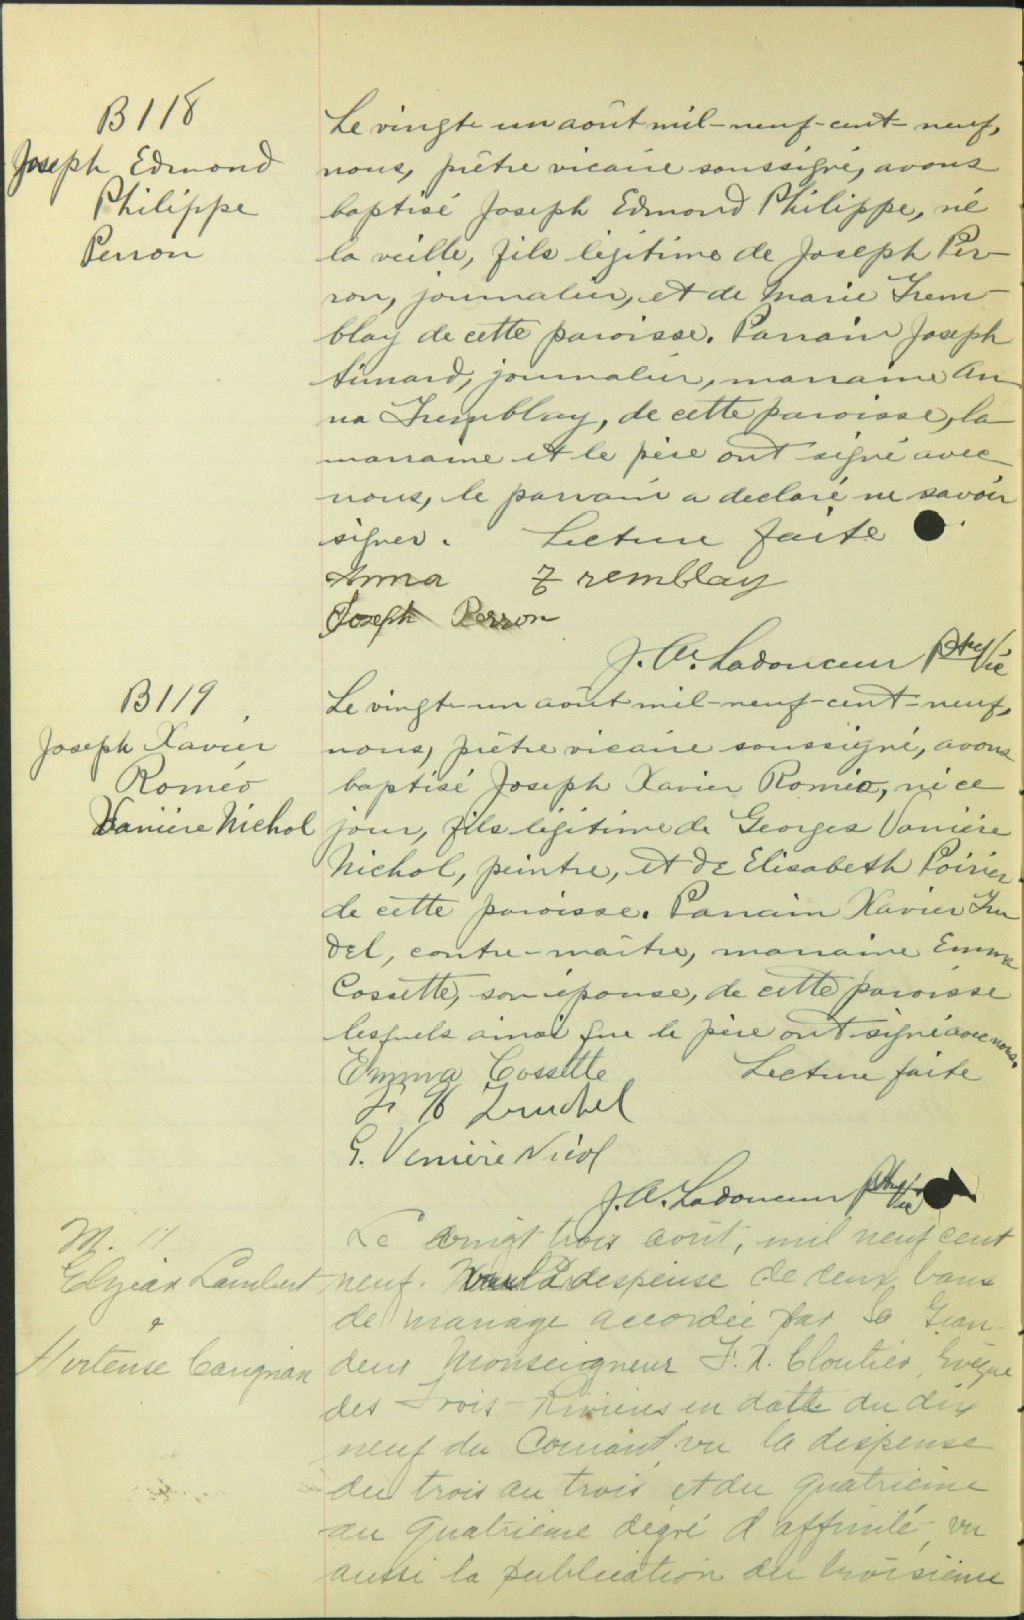 B118
Joseph Edmond
Philippe
Perron
Le vingt-un août mil-neuf-cent-neuf,
nous, prêtre vicaire soussigné, avons
baptisé Joseph Edmond Philippe, né
la veille, fils légitime de Joseph Per-
ron, journalier, et de Marie Trem-
blay de cette paroisse. Parrain Joseph
Simard, journalier, marraine An-
na Tremblay, de cette paroisse, la
marraine et le père ont signé avec
nous, le parrain a declaré ne savoir
signer. Lecture faite
Anna Tremblay
Joseph Perron
J. A. Ladouceur Ptre Vic
B119
Joseph Xavier
Roméo
Vanière Nichol
Le vingt-un août mil-neuf-cent-neuf,
nous, prêtre vicaire soussigné, avons
baptisé Joseph Xavier Roméo, né ce
jour, fils légitime de Georges Vanière
Nichol, peintre, et de Elisabeth Poirier
de cette paroisse. Parrain Xavier Tru
del, contre-maître, marraine Emma
Cossette, son épouse, de cette paroisse
lesquels ainsi que le père ont signé avec nous.
Emma Cossette Lecture faite
F X Trudel
G. Venière Nicol
J. A. Ladouceur Ptre Vic
M. 11
Elzéar Lambert
&
Hortense Carignan
Le vingt trois août, mil neuf cent
neuf. Vu la despense de deux bans
de mariage accordée par Sa Gran-
deur Monseigneur F. X. Cloutier, Evêque
des Trois-Rivières en date du dix
neuf du Courant, vu la dispense
du trois au trois et du quatrième
au quatrième dégré d'affinité, vu
aussi la publication du troisième